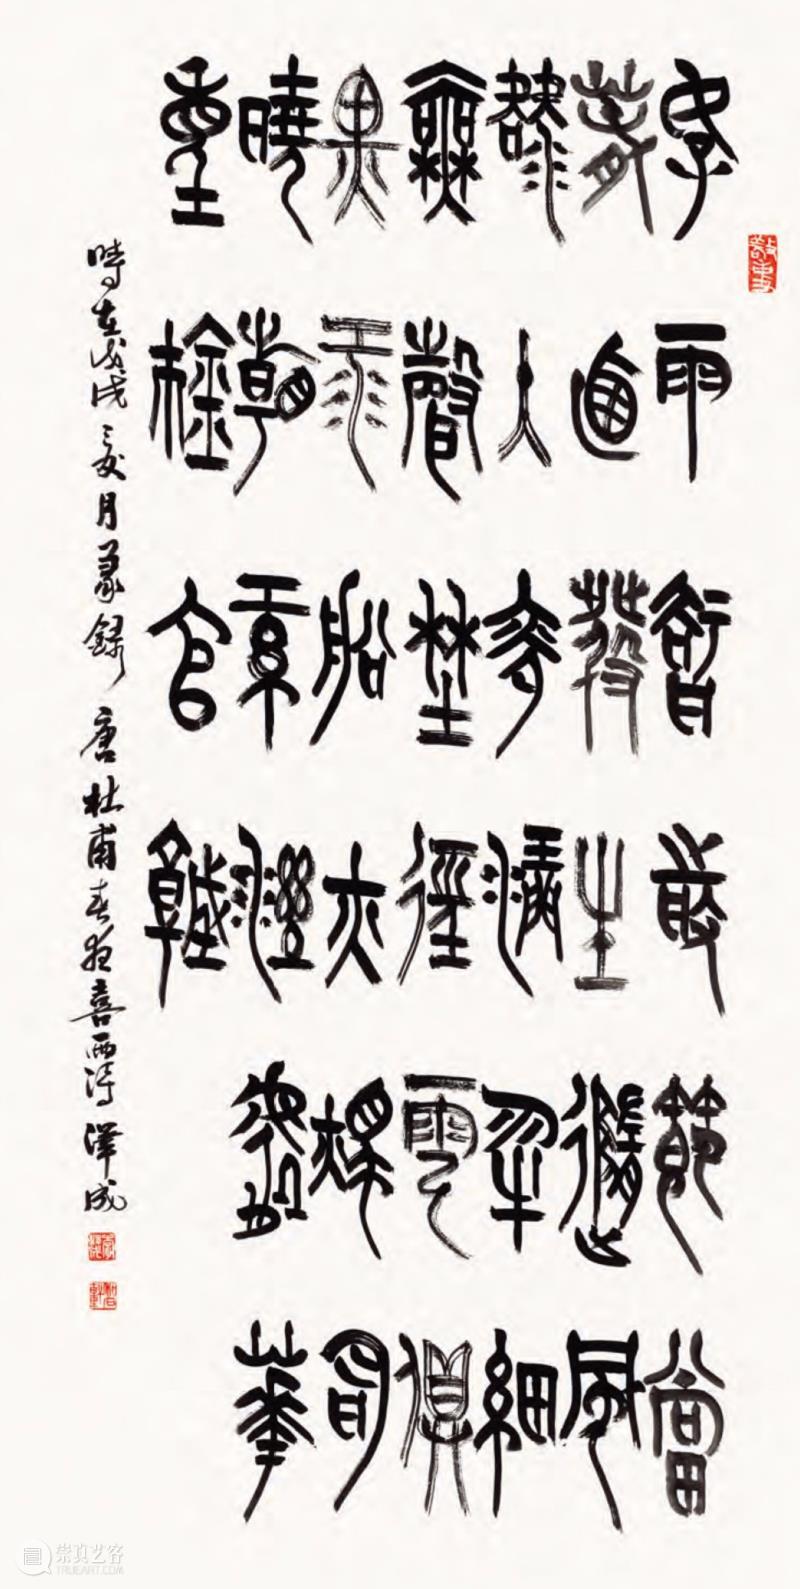 好雨知時節當
春乃發生隨風
潛入夜潤物細
無聲野徑雲俱
黑江船火獨明
曉看紅濕處花
重錦官城
時在戊戌之夏月篆錄唐杜甫春夜喜雨詩澤成
崇真艺客
TRUEART.COM